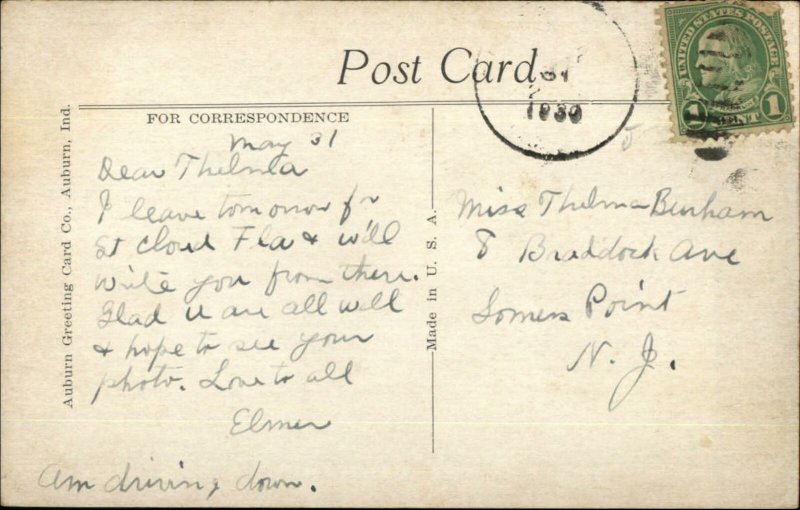 Post Card
FOR CORRESPONDENCE
31
1930
UNITED STATES POSTAGE
1 CENT 1
May 31
Dear Thelma
I leave tomorrow fr
St Cloud Fla & will
write you from there.
Glad u are all well
& hope to see your
photo. Love to all
Elmer
Am driving down.
Auburn Greeting Card Co., Auburn, Ind.
Made in U. S. A.
Miss Thelma Burham
8 Braddock Ave
Somers Point
N. J.